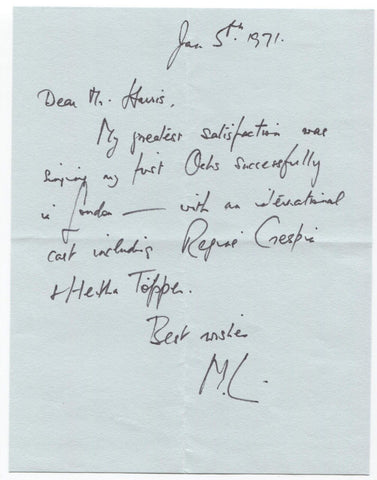 Jan 5th. 1971.
Dear Mr. Harris,
My greatest satisfaction was
singing my first Ochs successfully
in London — with an international
cast including Regine Crespin
& Hertha Töpper.
Best wishes
M.L.